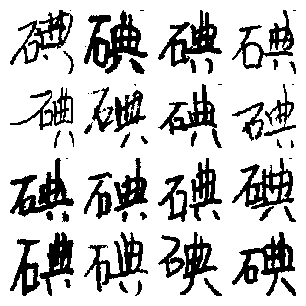 碘碘碘碘
碘碘碘碘
碘碘碘碘
碘碘碘碘